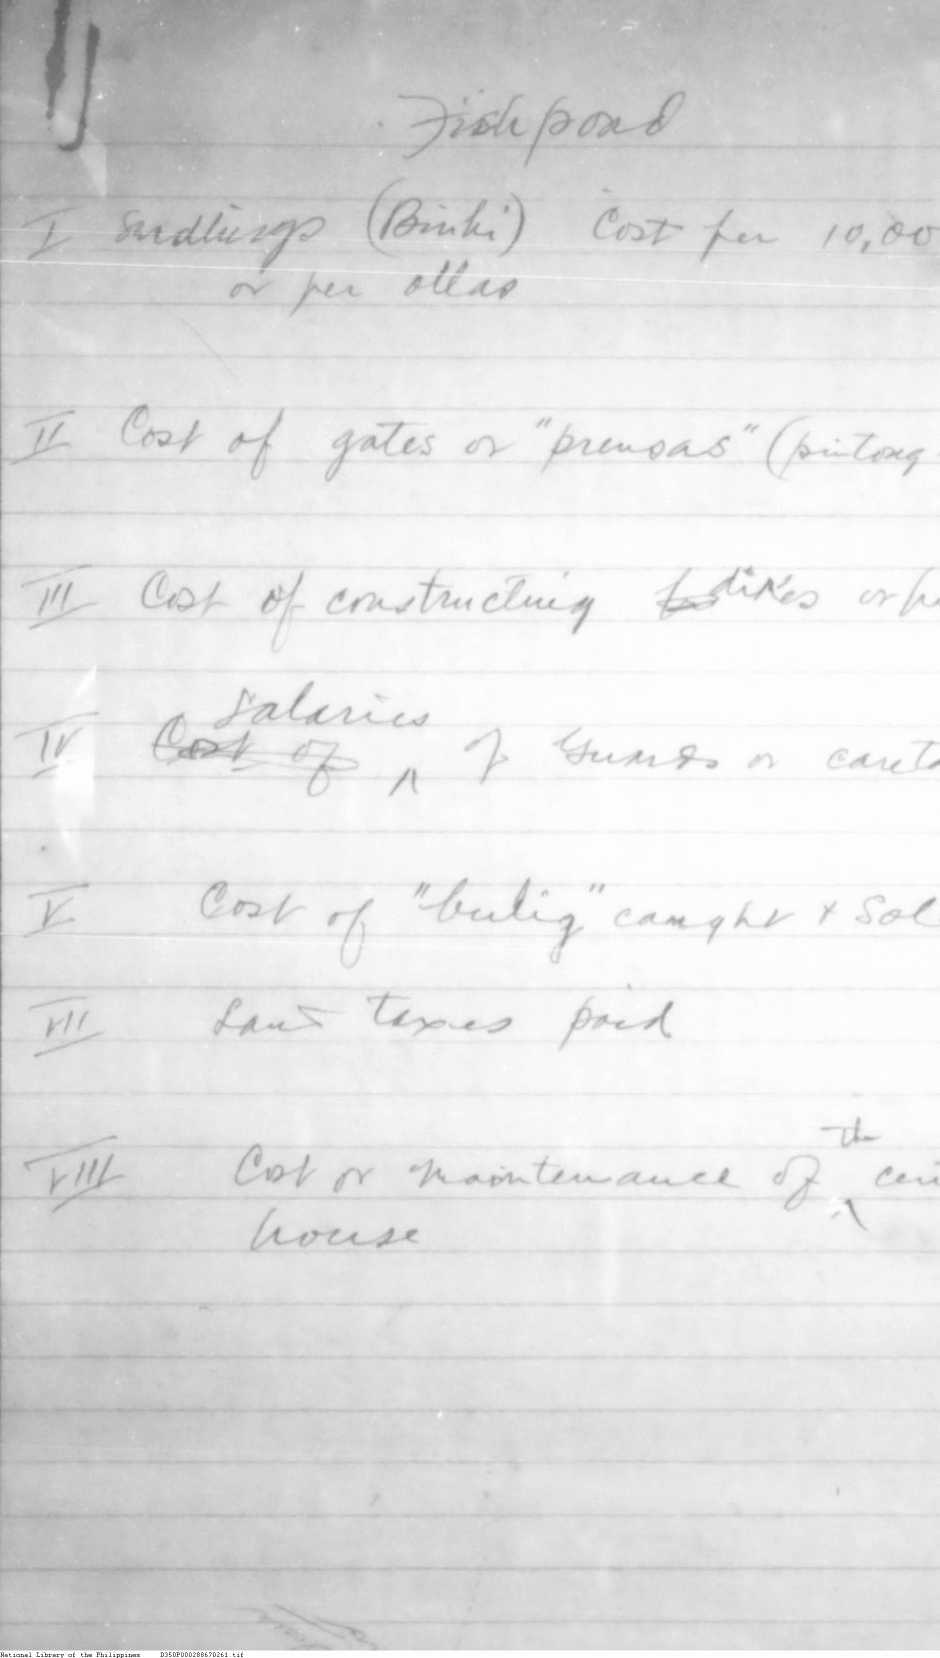 Fishpond
I Seedlings (Binhi) Cost per 10,00
or per ollas
II Cost of gates or "prensas" (pintong
III Cost of constructing dikes or
Salaries
IV Cost of of Guards or careta
V Cost of "bulig" caught + Sol
VII Land taxes paid
the
VIII Cost or maintenance of
house
National Library of the Philippines D350P000288670261.tif